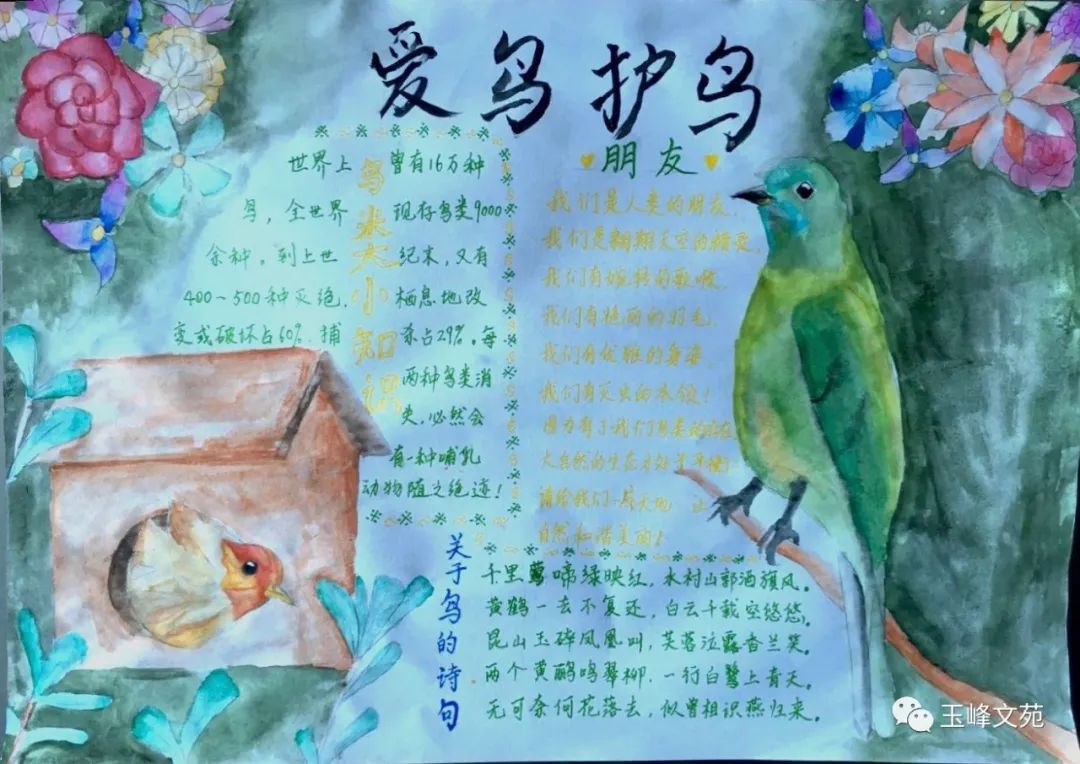 爱鸟护鸟
鸟类小知识
世界上曾有16万种
鸟，全世界现存鸟类9000
余种。到上世纪末，又有
400～500种灭绝，栖息地改
变或破坏占60%，捕杀占29%。每
两种鸟类消
失，必然会
有一种哺乳
动物随之绝迹！
朋友
我们是人类的朋友，
我们是翱翔天空的精灵，
我们有婉转的歌喉，
我们有艳丽的羽毛，
我们有优雅的身姿
我们有灭虫的本领！
因为有了我们鸟类的存在，
大自然的生态才平衡
请给我们一片天地 让
自然和谐美丽！
关于鸟的诗句
千里莺啼绿映红，水村山郭酒旗风。
黄鹤一去不复还，白云千载空悠悠。
昆山玉碎凤凰叫，芙蓉泣露香兰笑。
两个黄鹂鸣翠柳，一行白鹭上青天。
无可奈何花落去，似曾相识燕归来。
玉峰文苑